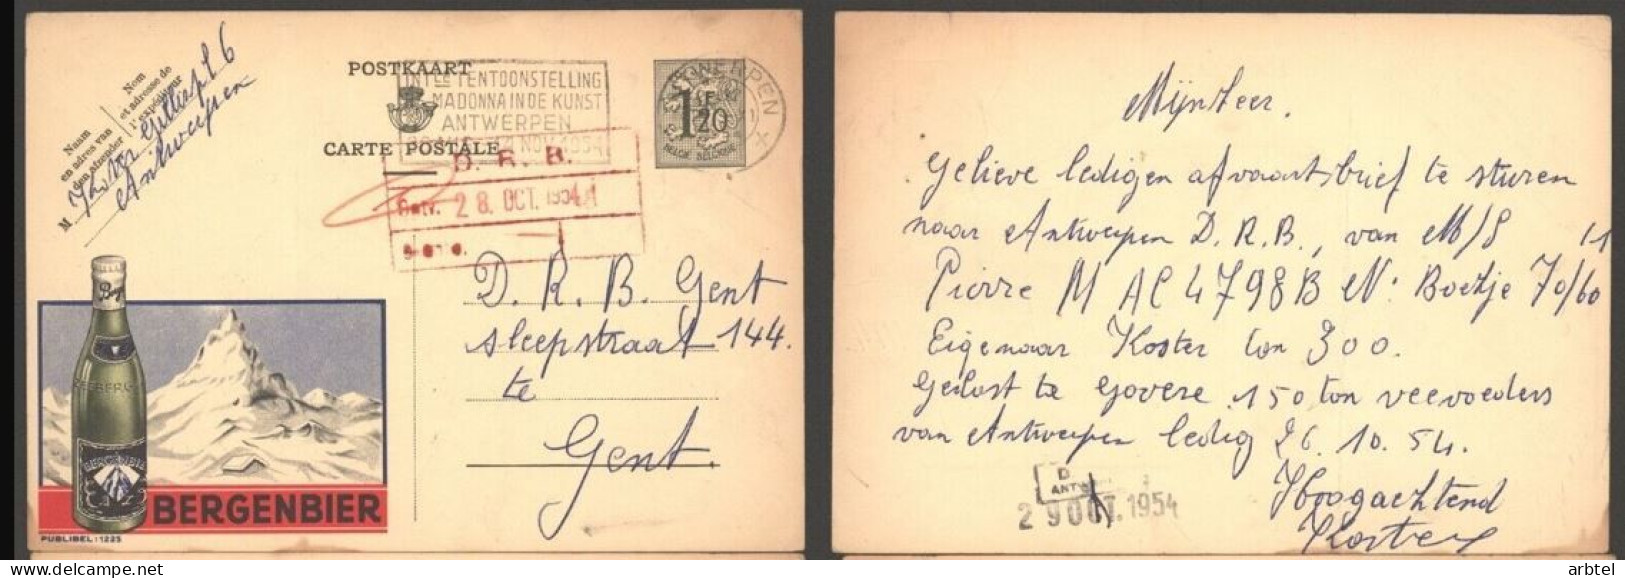 Nom
et adresse de
l'expéditeur
Naam
en adres van
den afzender
M.
Antwerpen
POSTKAART
CARTE POSTALE
INTLE TENTOONSTELLING
MADONNA IN DE KUNST
ANTWERPEN
NOV. 1954
ANTWERPEN
X
1F20
BELGIE BELGIQUE
D. R. B.
28. OCT. 1954
D. R. B. Gent
sleepstraat 144.
te
Gent.
BERGENBIER
BERGENBIER
PUBLIBEL : 1225
Mijnheer.
Gelieve ledigen afvaartsbrief te sturen
naar Antwerpen D. R. B., van M/S
Pierre M AC 4798B N: Boekje 70/60
Eigenaar Koster ton 300.
Gelost te Govere 150 ton veevoeders
van Antwerpen ledig 26.10.54.
Hoogachtend
Koster
29 OCT. 1954
arbtel